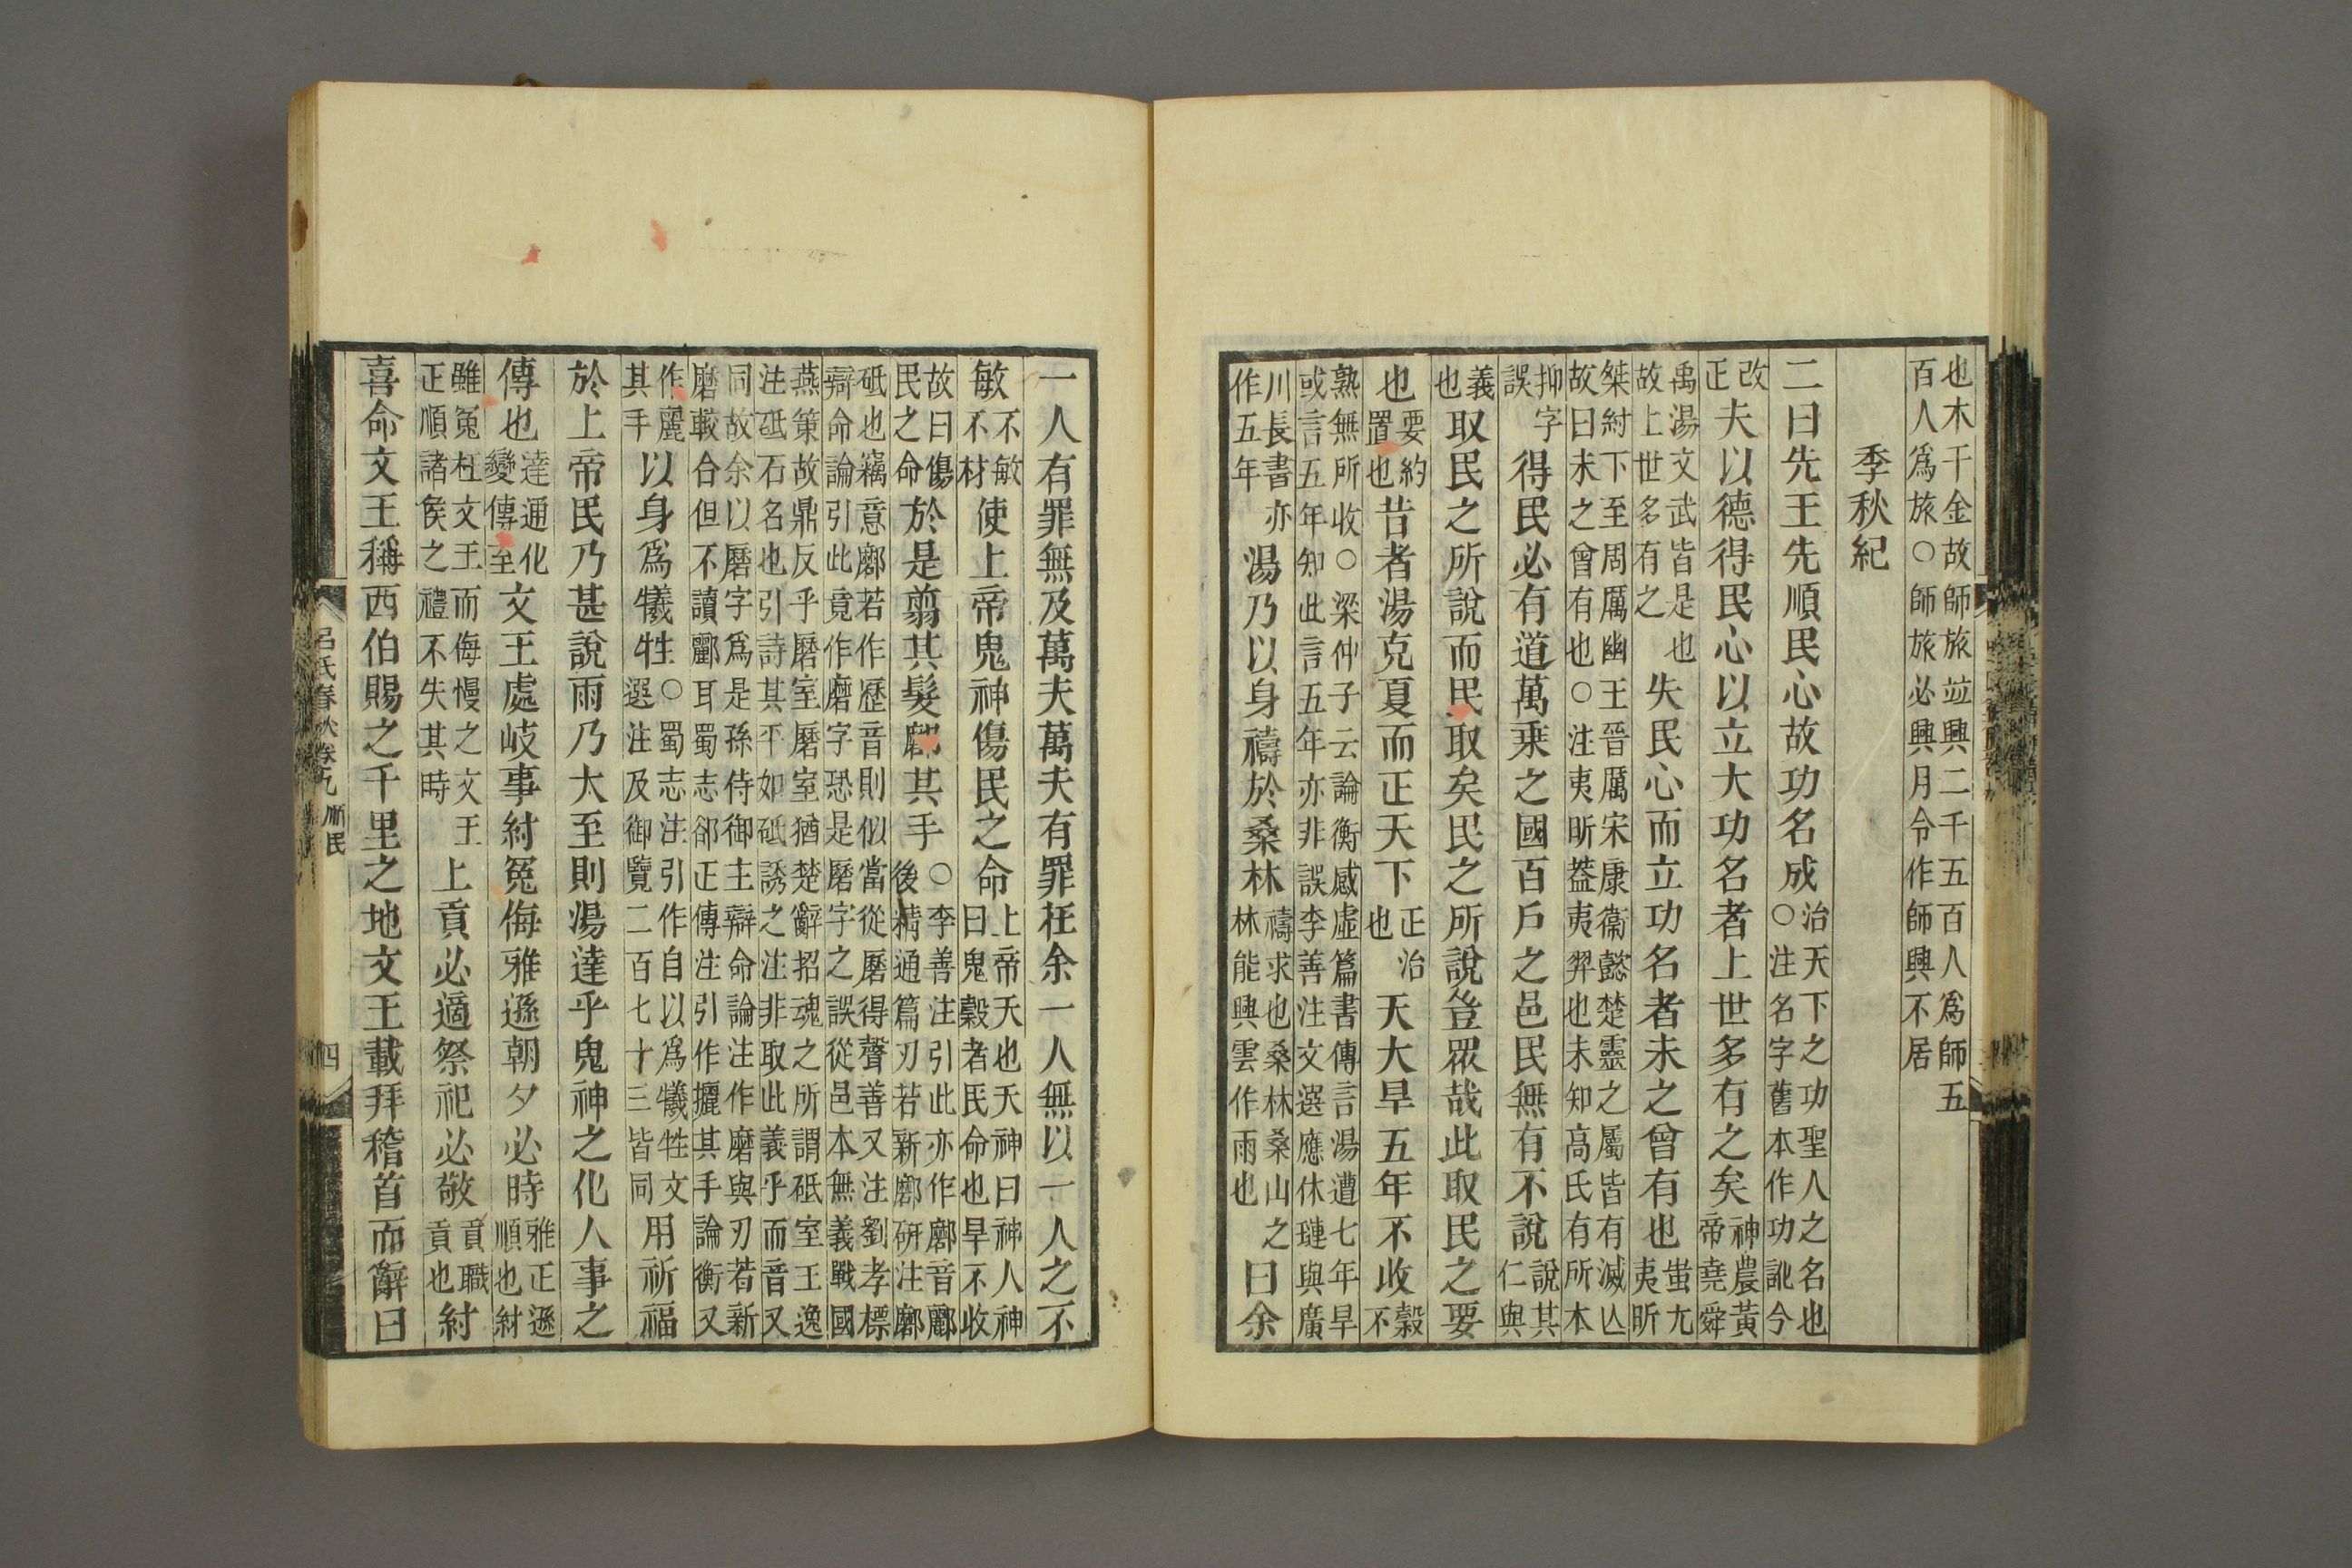 也木干金故師旅竝興二千五百人爲師五百人爲旅○師旅必興月令作師興不居
季秋紀
二曰先王先順民心故功名成治天下之功聖人之名也○注名字舊本作功訛今
改正夫以德得民心以立大功名者上世多有之矣神農黃帝堯舜
禹湯文武皆是也故上世多有之失民心而立功名者未之曾有也蚩尤夷昕
桀紂下至周厲幽王晉厲宋康衞懿楚靈之屬皆有滅亾故曰未之曾有也○注夷昕葢夷羿也未知高氏有所本
抑字誤得民必有道萬乘之國百戶之邑民無有不說說其仁與
義也取民之所說而民取矣民之所說豈眾哉此取民之要
也要約置也昔者湯克夏而正天下正治也天大旱五年不收穀不
熟無所收○梁仲子云論衡感虛篇書傳言湯遭七年旱或言五年知此言五年亦非誤李善注文選應休璉與廣
川長書亦作五年湯乃以身禱於桑林禱求也桑林桑山之林能興雲作雨也曰余
一人有罪無及萬夫萬夫有罪在余一人無以一人之不
敏不敏不材使上帝鬼神傷民之命上帝天也天神曰神人神曰鬼穀者民命也旱不收
故曰傷民之命於是翦其髮䣛其手○李善注引此亦作䣛音酈後精通篇刃若新䣛研注䣛
砥也竊意䣛若作歷音則似當從磿得聲善又注劉孝標辯命論引此竟作磨字恐是磿字之誤從邑本無義戰國
燕策故鼎反乎磿室磿室猶楚辭招魂之所謂砥室王逸注砥石名也引詩其平如砥誘之注非取此義乎而音又
同故余以磿字爲是孫侍御主辯命論注作磨與刃若新磨轍合但不讀酈耳蜀志郤正傳注引作攦其手論衡又
作麗其手以身爲犧牲○蜀志注引作自以爲犧牲文選注及御覽二百七十三皆同用祈福
於上帝民乃甚說雨乃大至則湯達乎鬼神之化人事之
傳也達通化變傳至文王處岐事紂冤侮雅遜朝夕必時雅正遜順也紂
雖冤枉文王而侮慢之文王正順諸矦之禮不失其時上貢必適祭祀必敬貢職貢也紂
喜命文王稱西伯賜之千里之地文王載拜稽首而辭曰
呂氏春秋卷九 順民
四